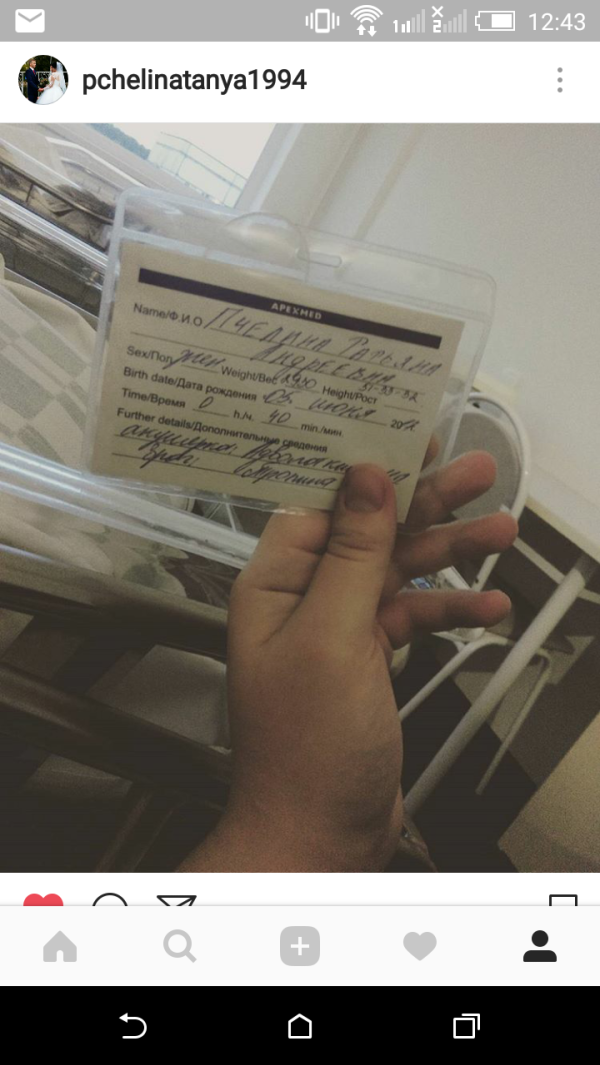 12:43
pchelinatanya1994
APEXMED
Name/Ф.И.О Пчелина Татьяна
Андреевна
Sex/Пол жен Weight/Вес Height/Рост
Birth date/Дата рождения 05 июня 20
Time/Время 0 h./ч. 40 min./мин.
Further details/Дополнительные сведения
акушерка:
врач: